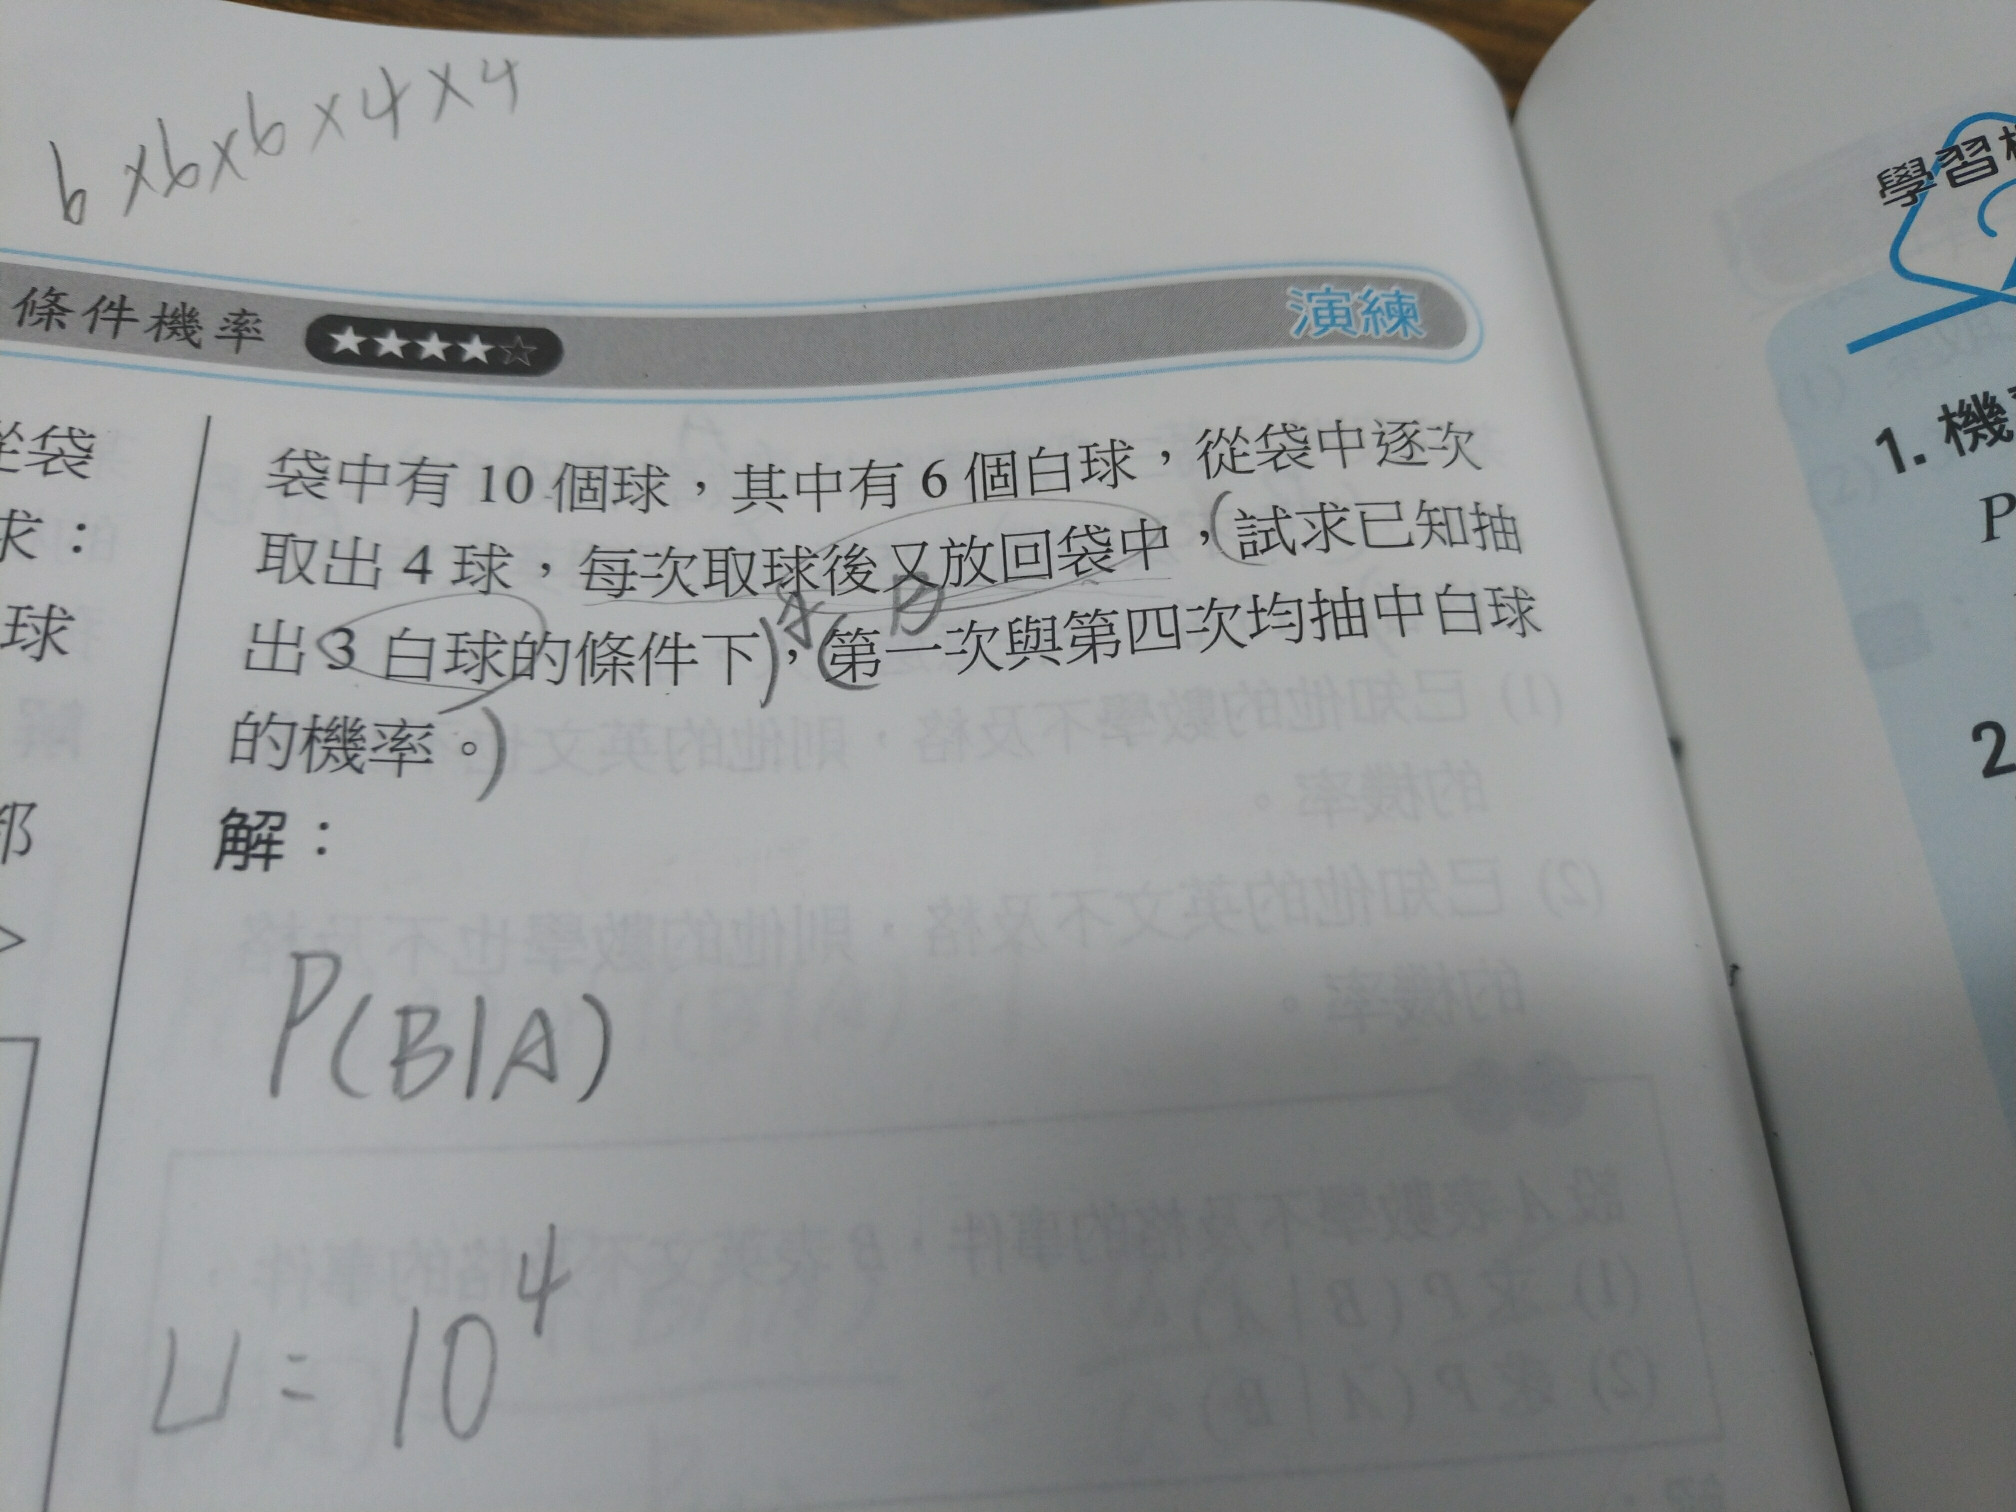 6×6×6×4×4
條件機率 ★★★★☆ 演練
從袋
求：
球
袋中有 10 個球，其中有 6 個白球，從袋中逐次
取出 4 球，每次取球後又放回袋中，(試求已知抽
A B
出 3 白球的條件下)，(第一次與第四次均抽中白球
的機率。)
解：
P(B|A)
U = 10^4
學習
1. 機
P
2